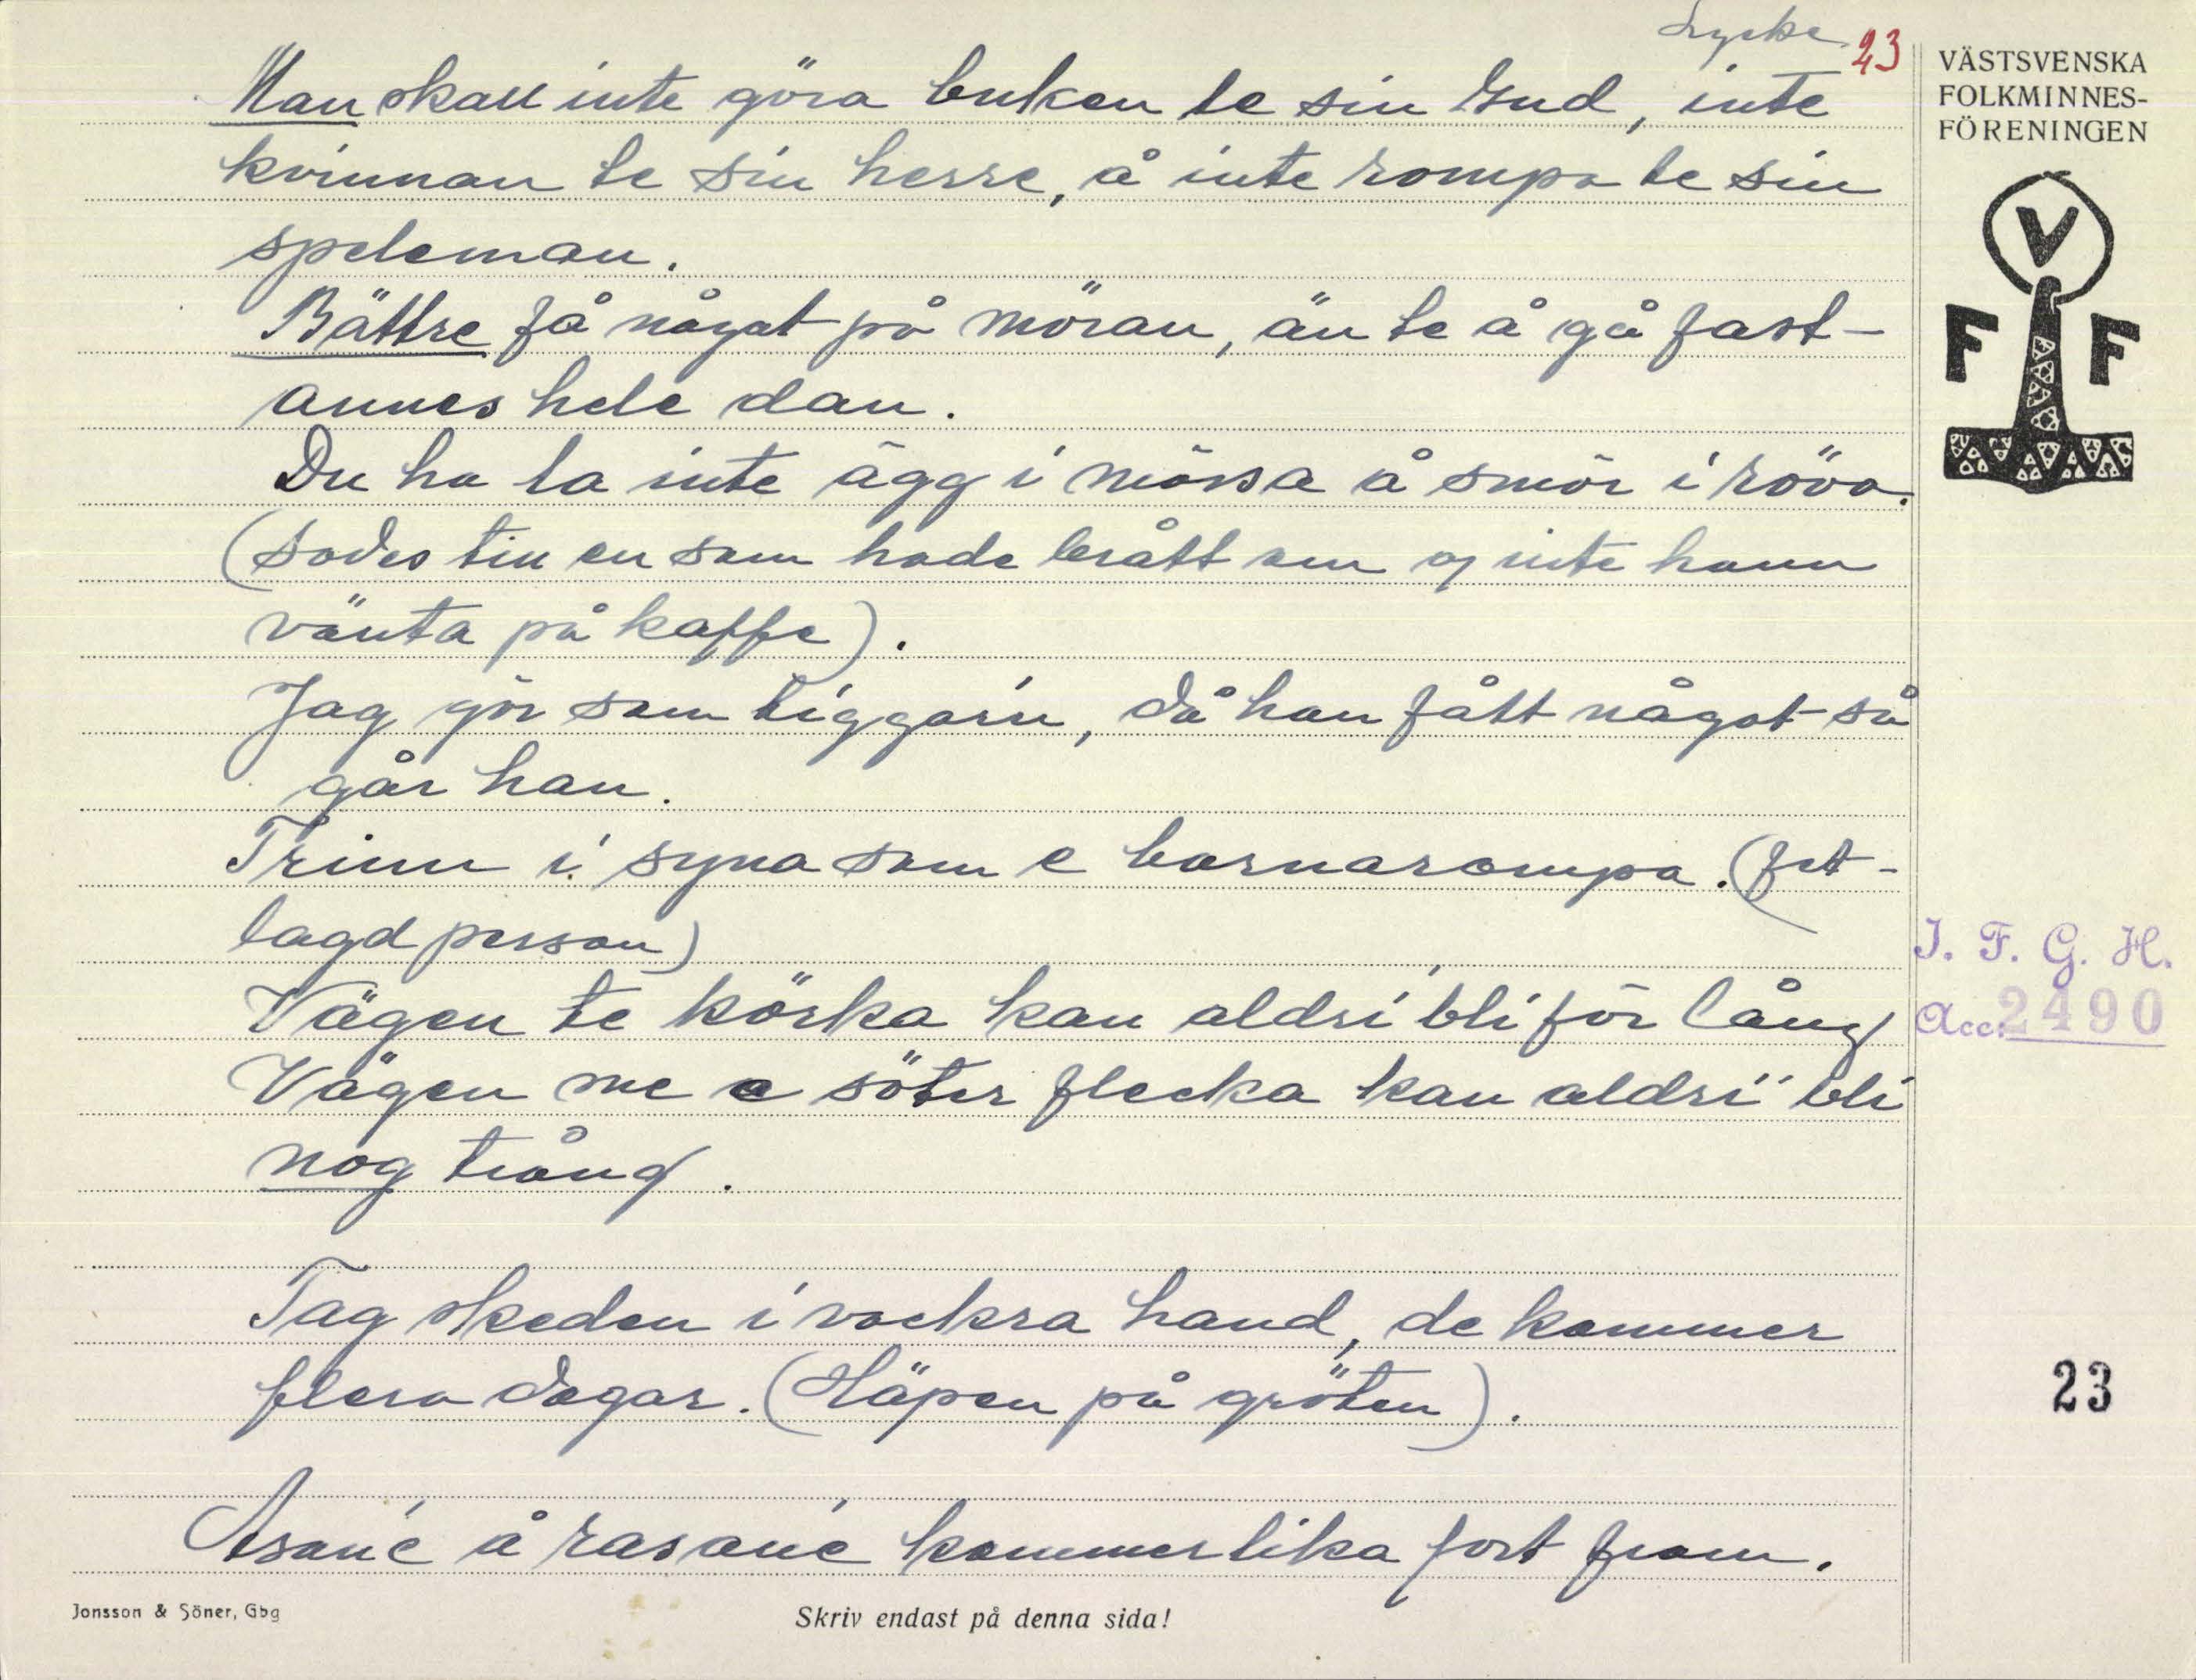 Lycke 23
Man skall inte göra buken te sin Gud, inte
kvinnan te sin herre, å inte rompa te sin
speleman.
Bättre få något på möran, än te å gå fast-
annes hele dan.
Du ha la inte ägg i mössa å smör i röva.
(Sades till en som hade brått om o inte hann
vänta på kaffe).
Jag gör som tiggarin, då han fått något så
går han.
Trinn i syna som e barnarompa. (fet-
lagd person)
Vägen te körka kan aldri bli för lång
Vägen me e söter flecka kan aldri bli
nog trång.
Tag skeden i vackra hand, de kommer
flera dagar. (Häpen på gröten).
Asané å rasané kommer lika fort fram.
Jonsson & Söner, Gbg
Skriv endast på denna sida!
VÄSTSVENSKA
FOLKMINNES-
FÖRENINGEN
V
F F
I. F. G. H.
Acc. 2490
23